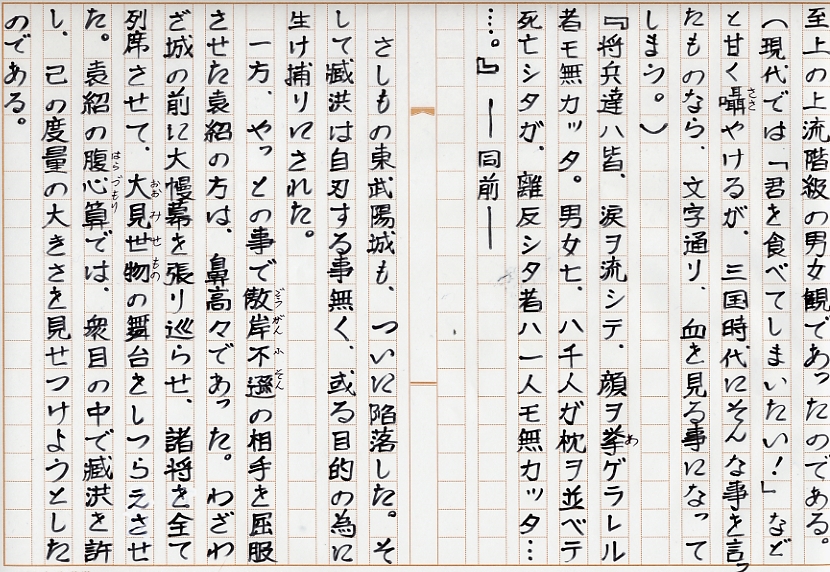 至上の上流階級の男女観であったのである。
(現代では「君を食べてしまいたい!」など
と甘く囁やけるが、三国時代にそんな事を言っ
たものなら、文字通り、血を見る事になって
しまう。)
『将兵達ハ皆、涙ヲ流シテ、顔ヲ挙ゲラレル
者モ無カッタ。男女七、八千人ガ枕ヲ並ベテ
死亡シタガ、離反シタ者ハ一人モ無カッタ…
…。』―同前―
さしもの東武陽城も、ついに陥落した。そ
して臧洪は自刃する事無く、或る目的の為に
生け捕りにされた。
一方、やっとの事で傲岸不遜の相手を屈服
させた袁紹の方は、鼻高々であった。わざわ
ざ城の前に大幔幕を張り巡らせ、諸将を全て
列席させて、大見世物の舞台をしつらえさせ
た。袁紹の腹心算では、衆目の中で臧洪を許
し、己の度量の大きさを見せつけようとした
のである。